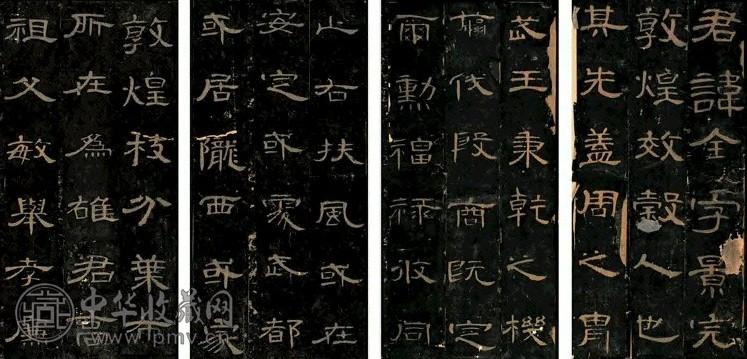 君諱全字景完
敦煌效穀人也
其先蓋周之胄
武王秉乾之機
翦伐殷商既定
爾勳福祿攸同
止右扶風或在
安定或處武都
或居隴西或家
敦煌枝分葉布
所在為雄君高
祖父敏舉孝廉
藏
中华收藏网
www.pmv.cn